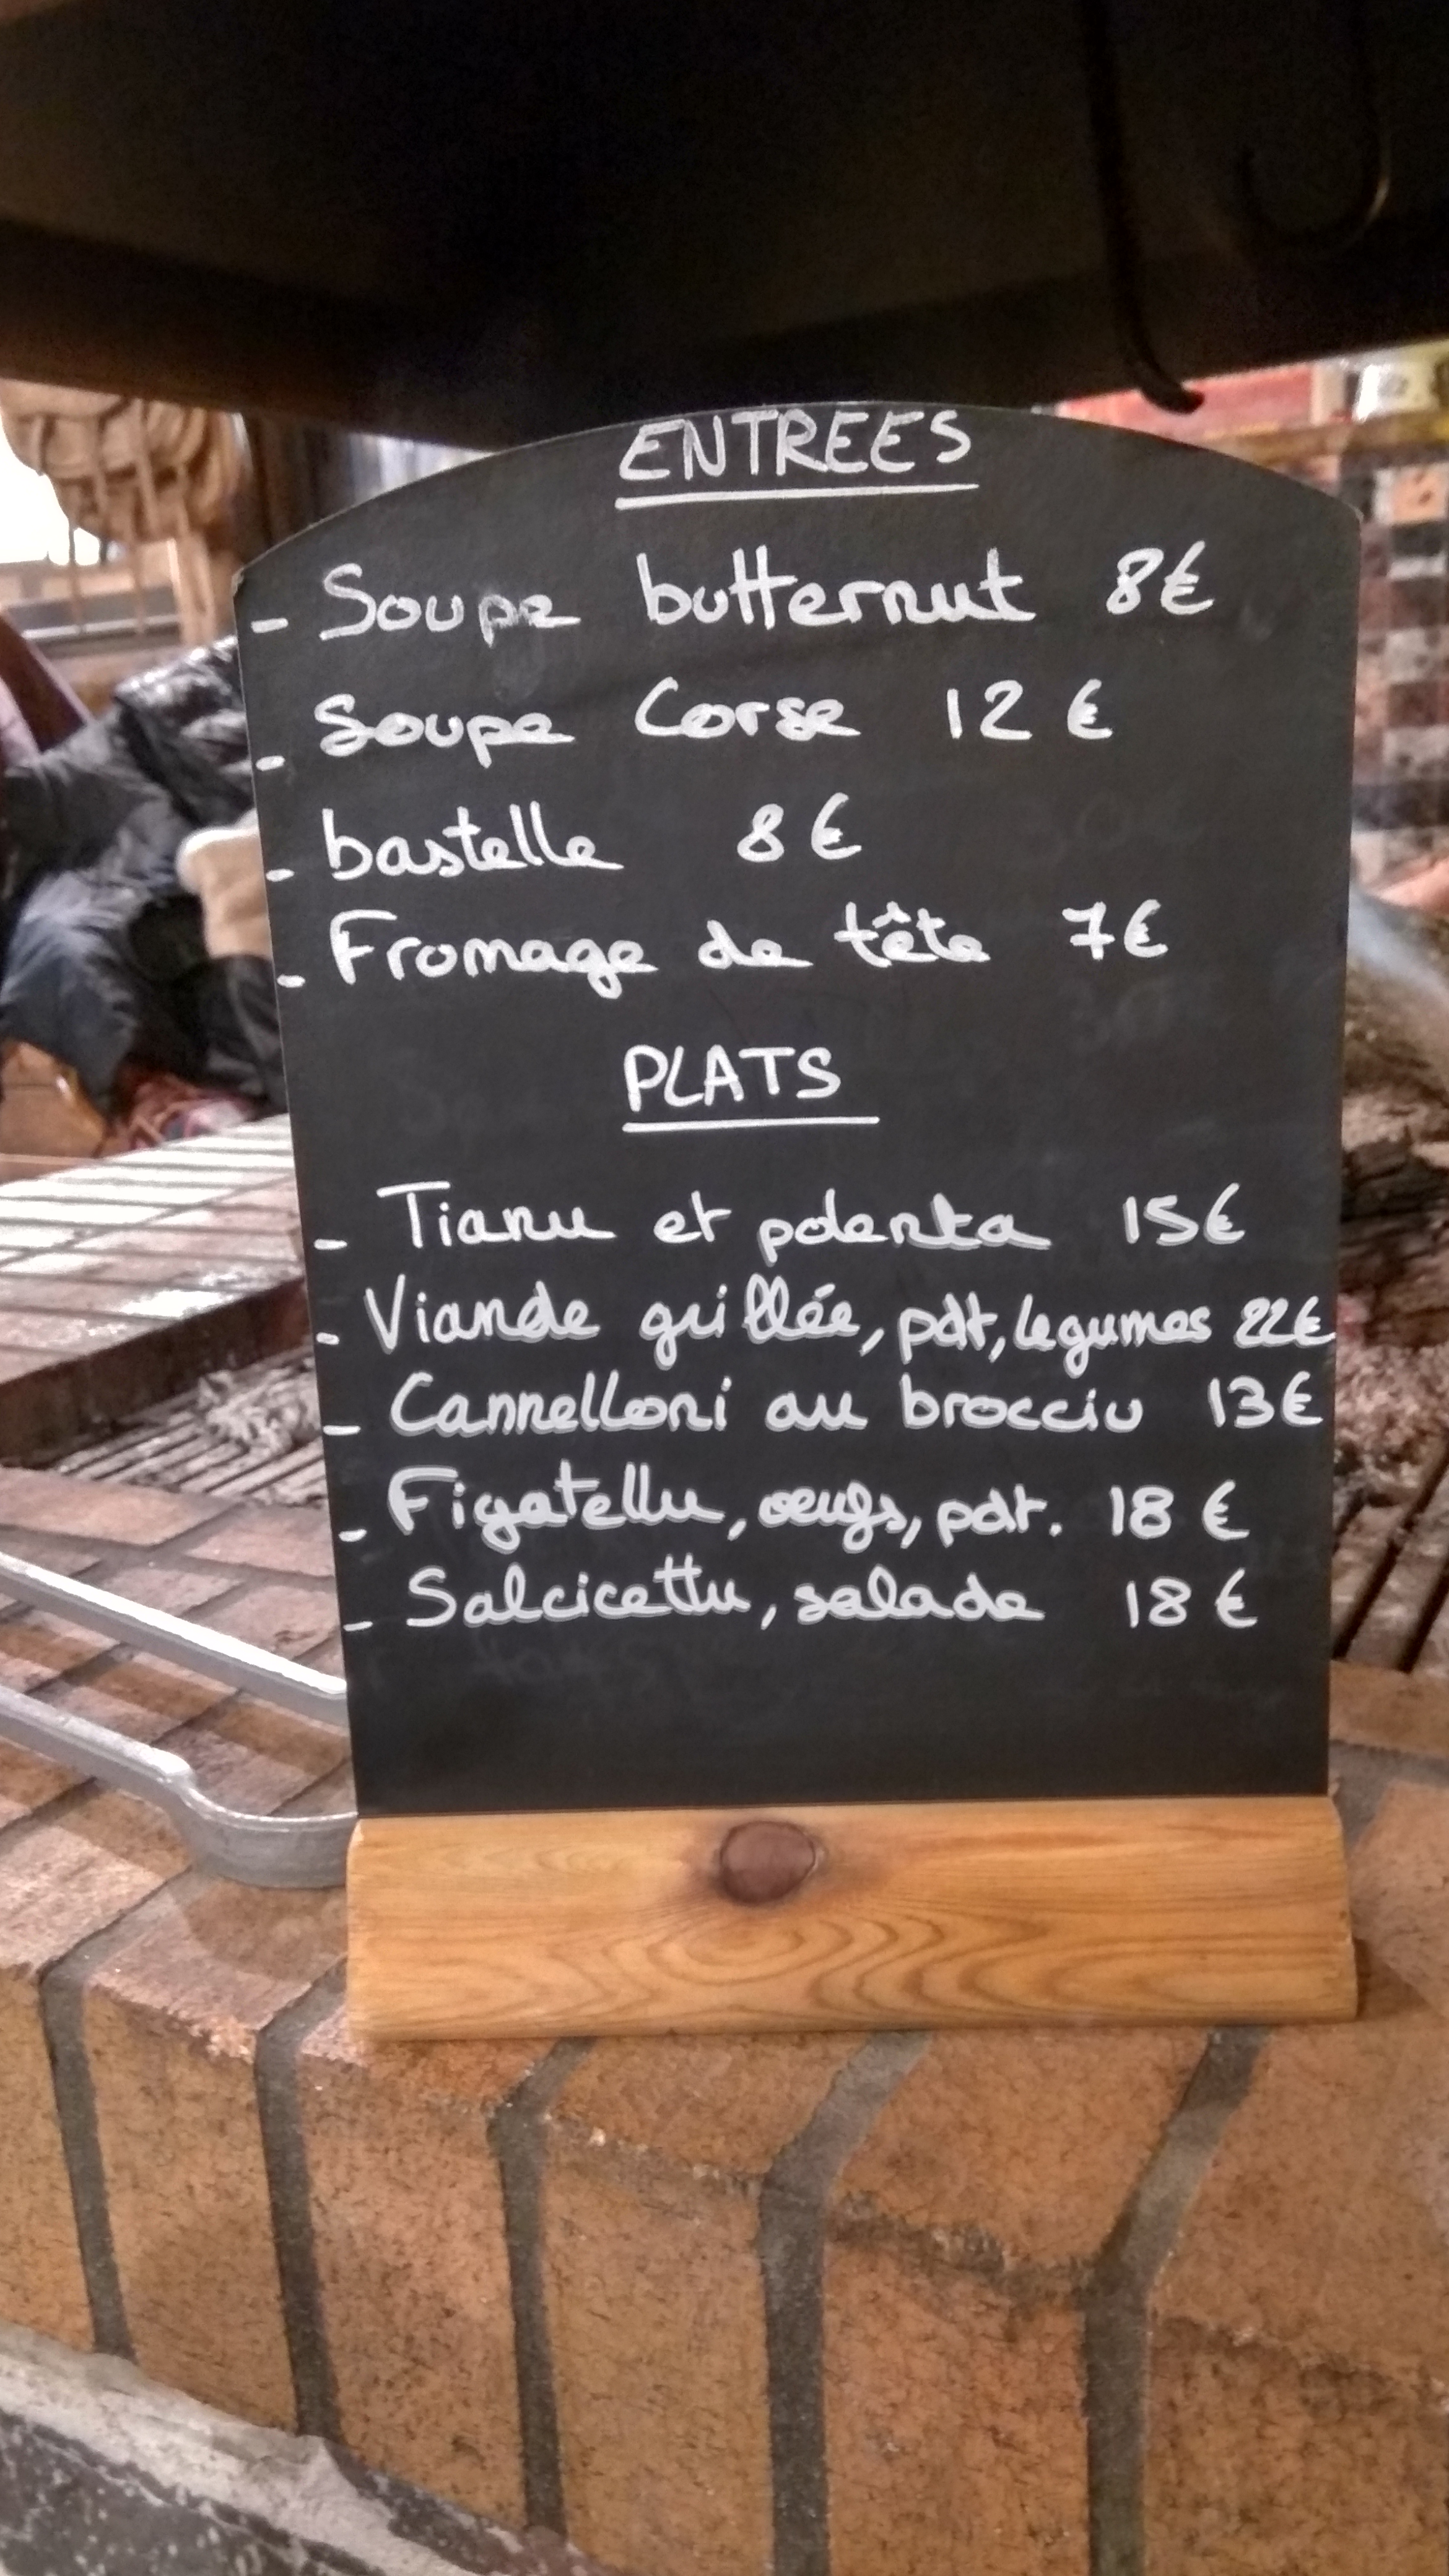 ENTREES
- Soupe butternut 8€
- Soupe Corse 12€
- bastelle 8€
- Fromage de tête 7€
PLATS
- Tianu et polenta 15€
- Viande grillée, pdt, legumes 22€
- Cannelloni au brocciu 13€
- Figatellu, oeufs, pdt. 18€
- Salcicettu, salade 18€